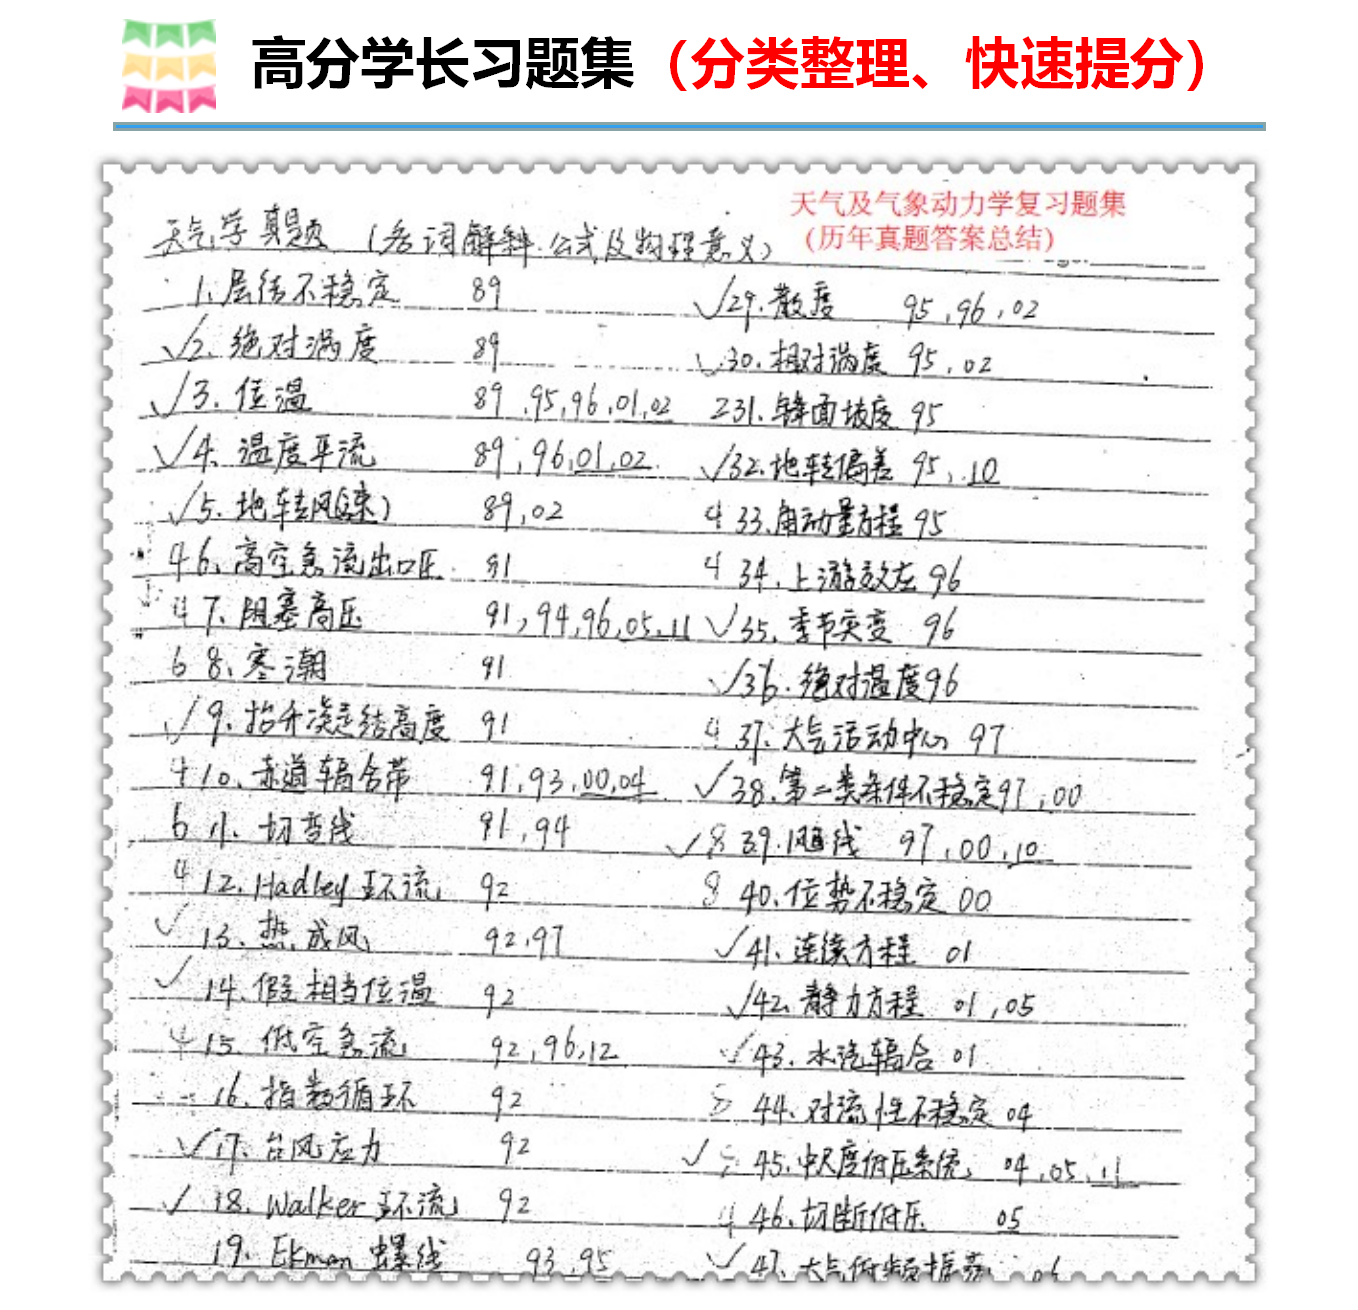 高分学长习题集（分类整理、快速提分）
天气及气象动力学复习题集
（历年真题答案总结）
天气学真题 （名词解释.公式及物理意义）
1.层结不稳定 89
√2.绝对涡度 89
√3.位温 89,95,96,01,02
√4.温度平流 89,96,01,02
√5.地转风(速) 89,02
4 6.高空急流出口区 91
4 7.阻塞高压 91,94,96,05,11
6 8.寒潮 91
√9.抬升凝结高度 91
4 10.赤道辐合带 91,93,00,04
6 11.切变线 91,94
4 12.Hadley环流 92
√13.热成风 92,97
√14.假相当位温 92
4 15.低空急流 92,96,12
16.指数循环 92
√17.台风应力 92
√18.Walker环流 92
19.Ekman螺线 93,95
√29.散度 95,96,02
√30.相对涡度 95,02
2 31.锋面坡度 95
√32.地转偏差 95,10
4 33.角动量方程 95
4 34.上游效应 96
√35.季节突变 96
√36.绝对温度 96
4 37.大气活动中心 97
√38.第二类条件不稳定 97,00
√8 39.飑线 97,00,10
8 40.位势不稳定 00
√41.连续方程 01
√42.静力方程 01,05
√43.水汽辐合 01
44.对流性不稳定 04
√45.中尺度低压系统 04,05,11
4 46.切断低压 05
√47.大气低频振荡 06